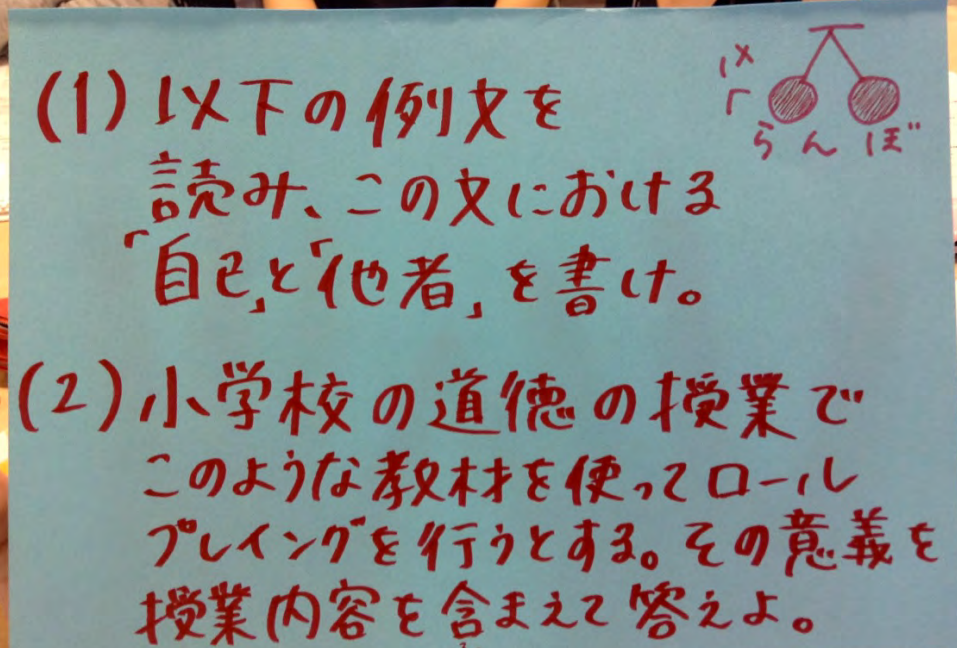 らんぼ
(1) 以下の例文を
読み、この文における
「自己」と「他者」を書け。
(2) 小学校の道徳の授業で
このような教材を使ってロール
プレイングを行うとする。その意義を
授業内容を含まえて答えよ。